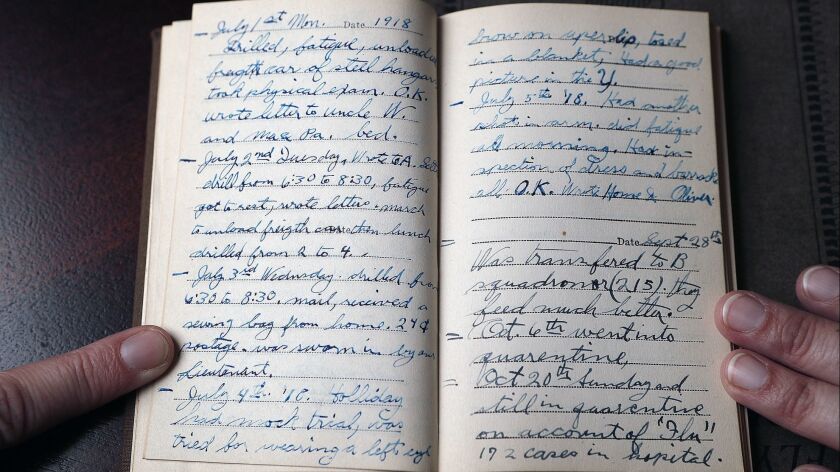 - July 1st Mon. Date 1918
Drilled, fatigue, unload
freigth car of steel hangars
took physical exam. O.K.
wrote letter to uncle W.
and Ma & Pa. bed.
- July 2nd Tuesday. Wrote to A.
drill from 6:30 to 8:30, fatigue
got to rest, wrote letters. march
to unload freigth car then lunch
drilled from 2 to 4.
- July 3rd Wednesday. drilled from
6:30 to 8:30. mail, received a
sewing bag from home. 24¢
postage. was sworn in by our
Lieutenant.
- July 4th. '18. Holliday
had mock trial, was
tried for wearing a left eye
brow on uper lip, tosed
in a blanket, Had a good
picture in the Y.
- July 5th '18. Had another
shot in arm. did fatigue
all morning. Had in-
spection of dress and barracks
all O.K. Wrote Home & Oliver.
Date Sept 28th
= Was transfered to B
squadron (215). They
feed much better.
= Oct. 6th went into
quarentine,
= Oct 20th Sunday and
still in quarentine
on account of "Flu"
172 cases in hospital.